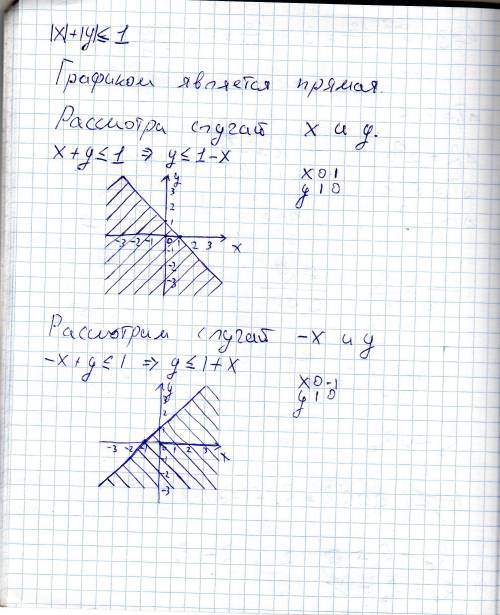 |x|+|y|≤1
Графиком является прямая.
Рассмотри случай x и y.
x+y≤1 ⇒ y≤1-x
x 0 1
y 1 0
y
3
2
1
-3 -2 -1 0 1 2 3 x
-1
-2
-3
Рассмотрим случай -x и y
-x+y≤1 ⇒ y≤1+x
x 0 -1
y 1 0
y
3
2
1
-3 -2 -1 0 1 2 3 x
-1
-2
-3